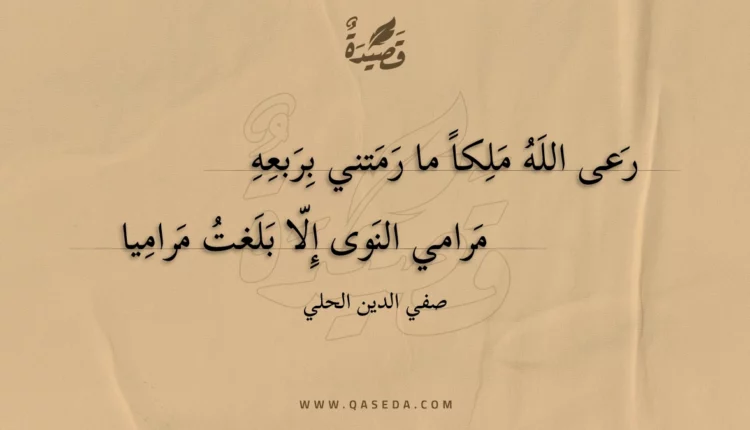 قَصِيدَةٌ
رَعى اللَهُ مَلِكاً ما رَمَتني بِرَبعِهِ
مَرامي النَوى إِلّا بَلَغتُ مَرامِيا
صفي الدين الحلي
WWW.QASEDA.COM